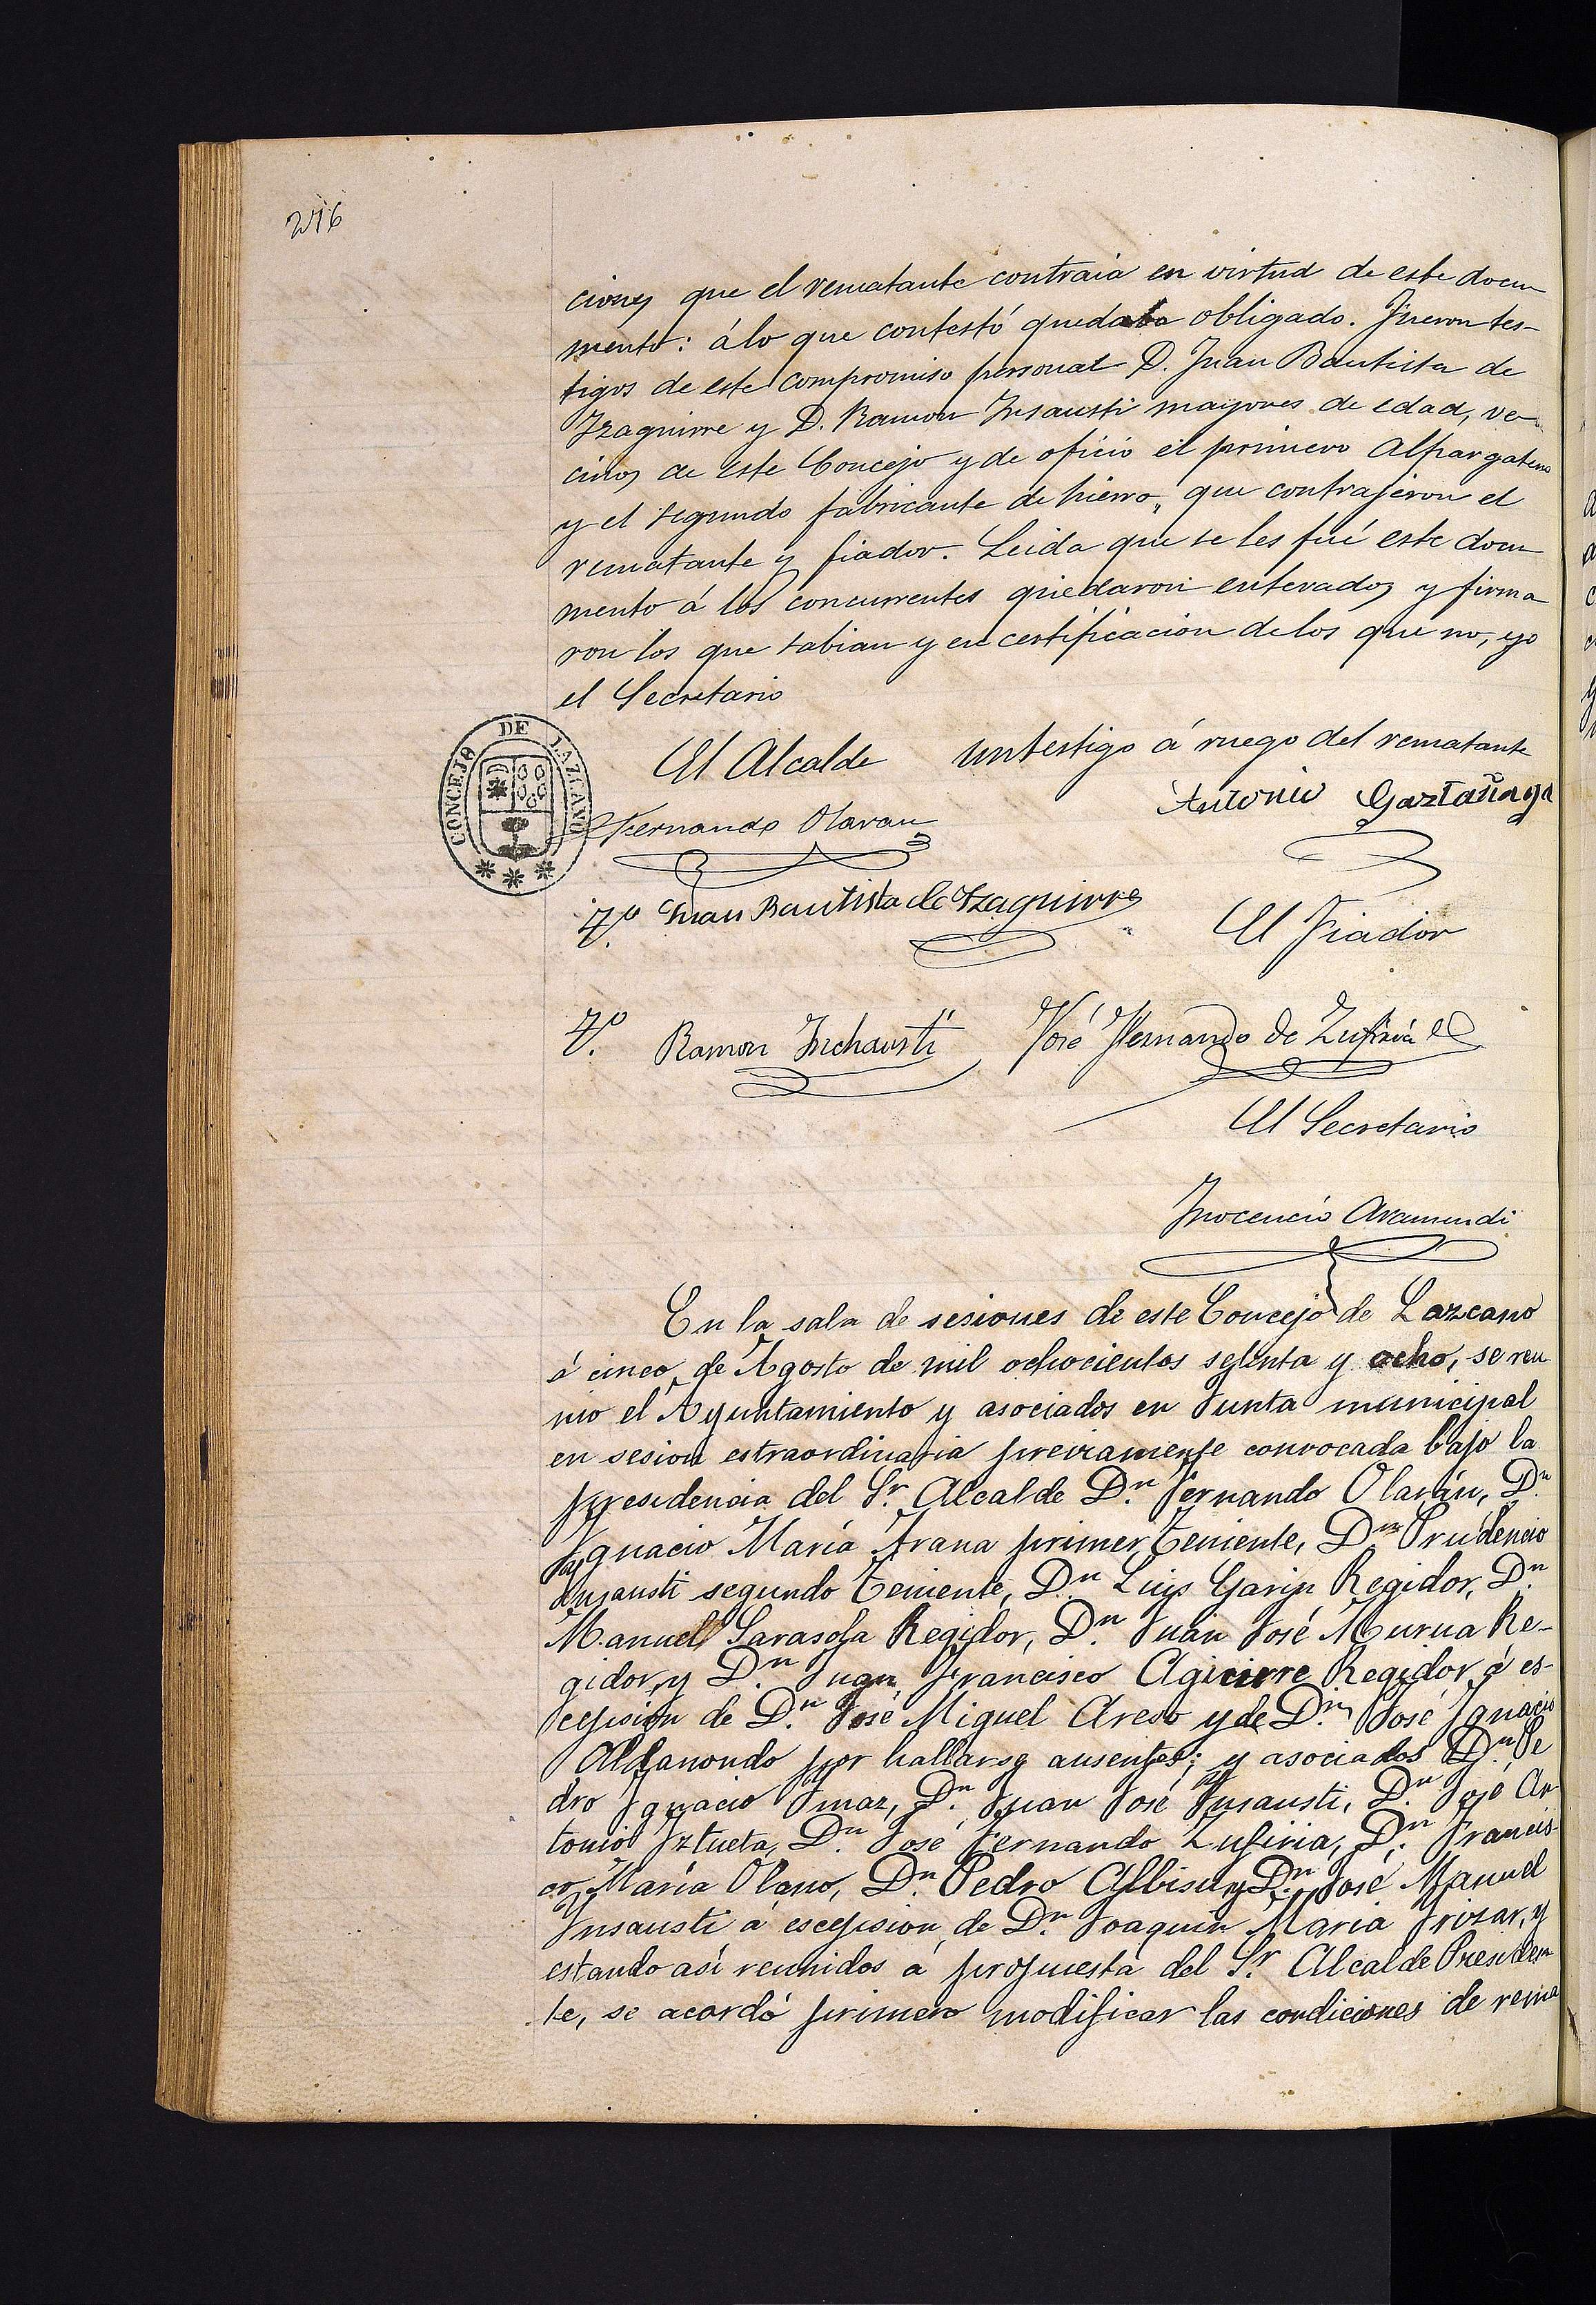 216
ciones que el rematante contraia en virtud de este docu
mento: á lo que contestó quedaba obligado. Fueron tes-
tigos de este compromiso personal D. Juan Bautista de
Yzaguirre y D. Ramon Insausti mayores de edad, ve-
cinos de este Concejo y de oficio el primero Alpargatero
y el segundo fabricante de hierro, que contrajeron el
rematante y fiador. Leida que se les fué este docu
mento á los concurrentes quedaron enterados y firma
ron los que sabian y en certificacion de los que no, yo
el Secretario
CONCEJO DE LAZCANO
El Alcalde un testigo á ruego del rematante
Fernando Olaran Antonio Gaztañaga
T.º Juan Bautista de Yzaguirre El Fiador
T.º Ramon Inchausti José Fernando de Zufiría
El Secretario
Inocencio Aramendi
En la sala de sesiones de este Concejo de Lazcano
á cinco de Agosto de mil ochocientos setenta y ocho, se reu
nio el Ayuntamiento y asociados en Junta municipal
en sesion estraordinaria previamente convocada bajo la
presidencia del Sr. Alcalde Dn. Fernando Olarán, Dn.
Ygnacio María Arana primer Teniente, Dn. Prudencio
Insausti segundo Teniente, Dn. Luis Garin Regidor, Dn.
Manuel Sarasola Regidor, Dn. Juan José Murua Re-
gidor, y Dn. Juan Francisco Aguirre Regidor á es-
cepcion de Dn. José Miguel Areso y de Dn. José Ygnacio
Aldanondo por hallarse ausentes; y asociados Dn. Pe
dro Ygnacio Ymaz, Dn. Juan José Ynsausti, Dn. José An
tonio Yztueta, Dn. José Fernando Zufiria, Dn. Francis
co María Olano, Dn. Pedro Albisu y Dn. José Manuel
Ynsausti á escepcion de Dn. Joaquin Maria Yrizar, y
estando así reunidos á propuesta del Sr. Alcalde Presiden
te, se acordó primero modificar las condiciones de rema